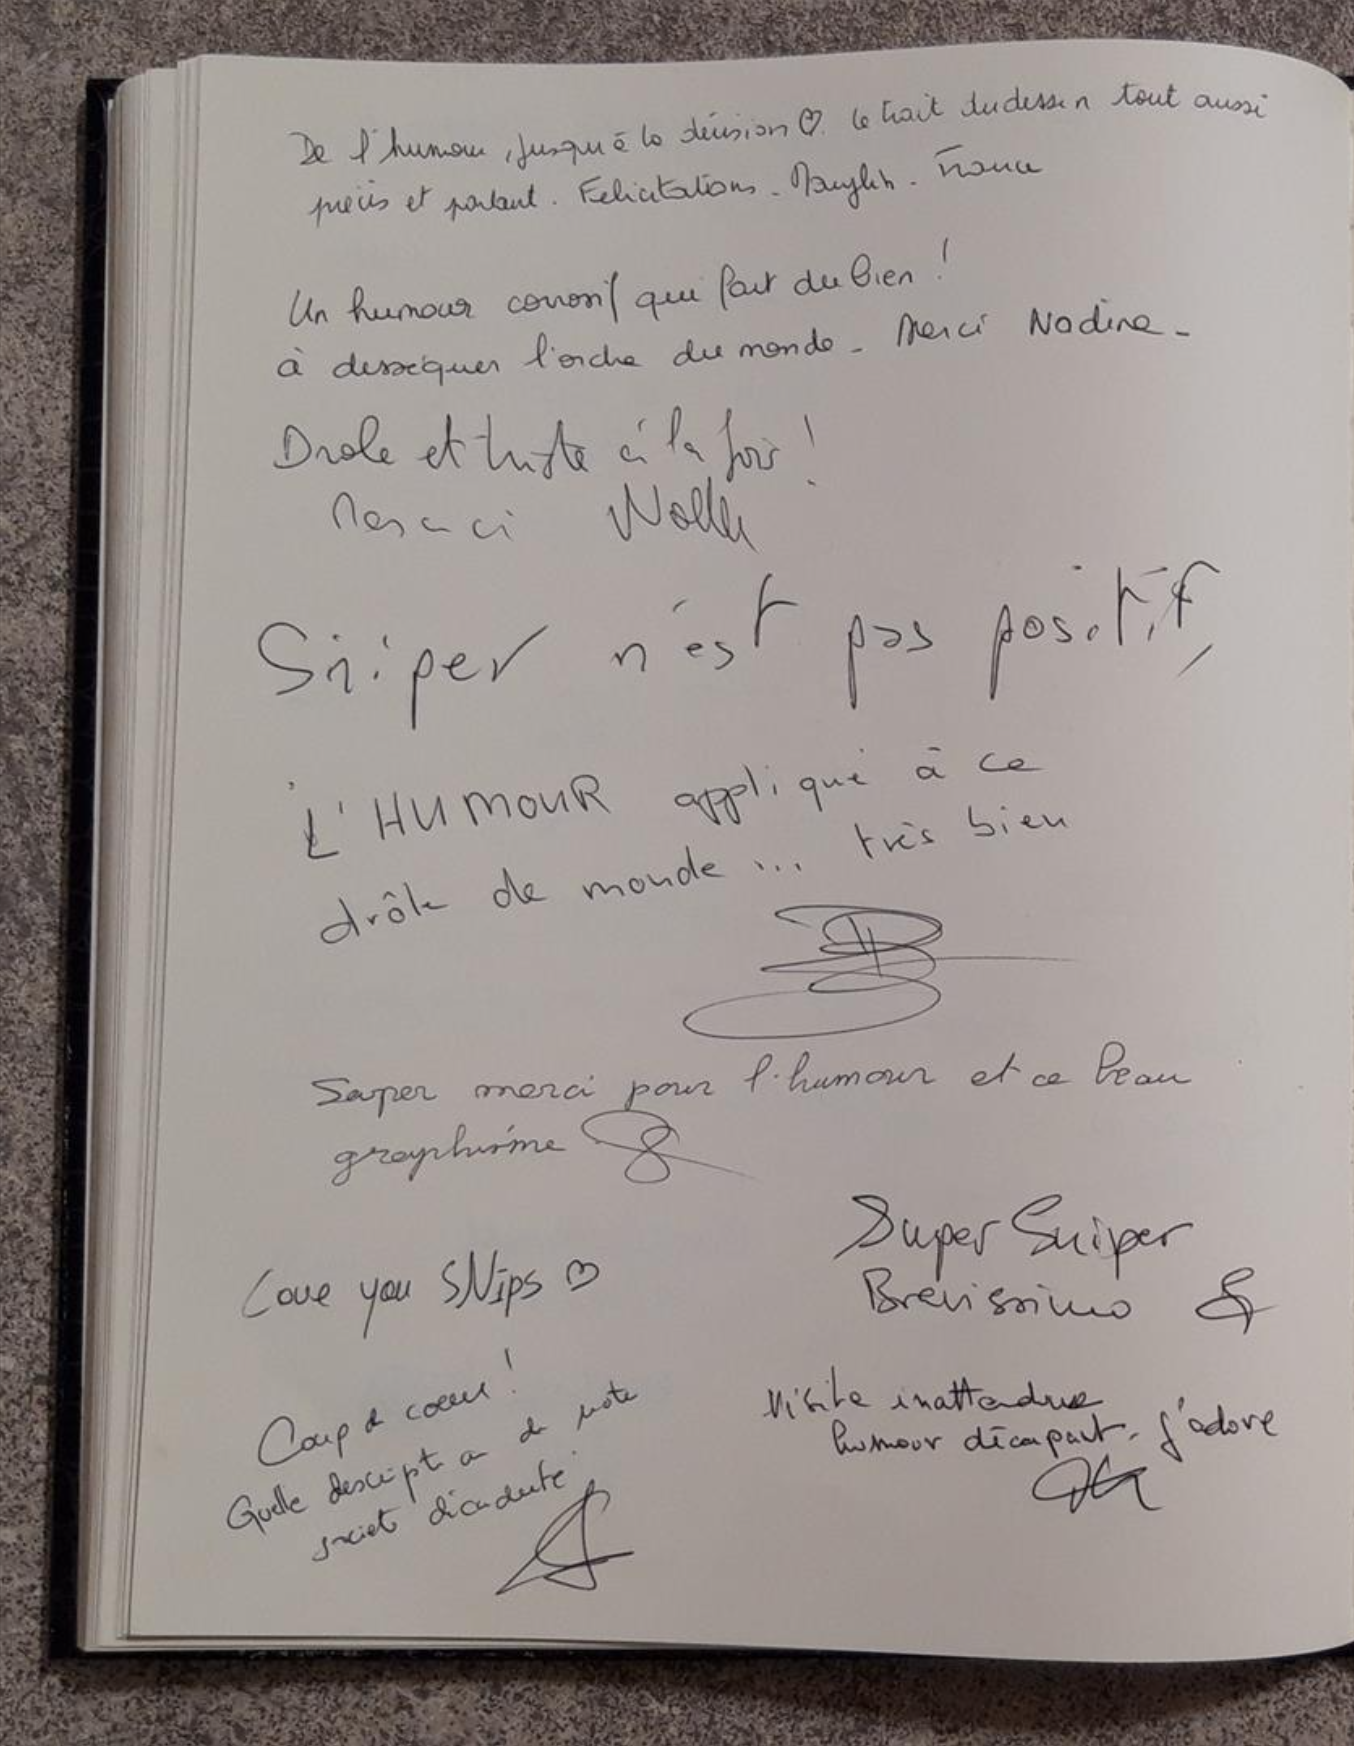 De l'humour, jusqu'à la dérision ♡. Le trait du dessin tout aussi
précis et parlant. Felicitations - - France
Un humour corrosif qui fait du bien !
à dessequer l'ordre du monde - Merci Nadine -
Drole et triste à la fois !
Merci
Sniper n'est pas positif,
L'HUMOUR appliqué à ce
drôle de monde ... très bien
Super merci pour l'humour et ce beau
graphisme
Love you SNips ♡
Super Sniper
Brevissimo
Coup de coeur !
Quelle description de notre
société décadente.
Visite inattendue
humour décapant. j'adore